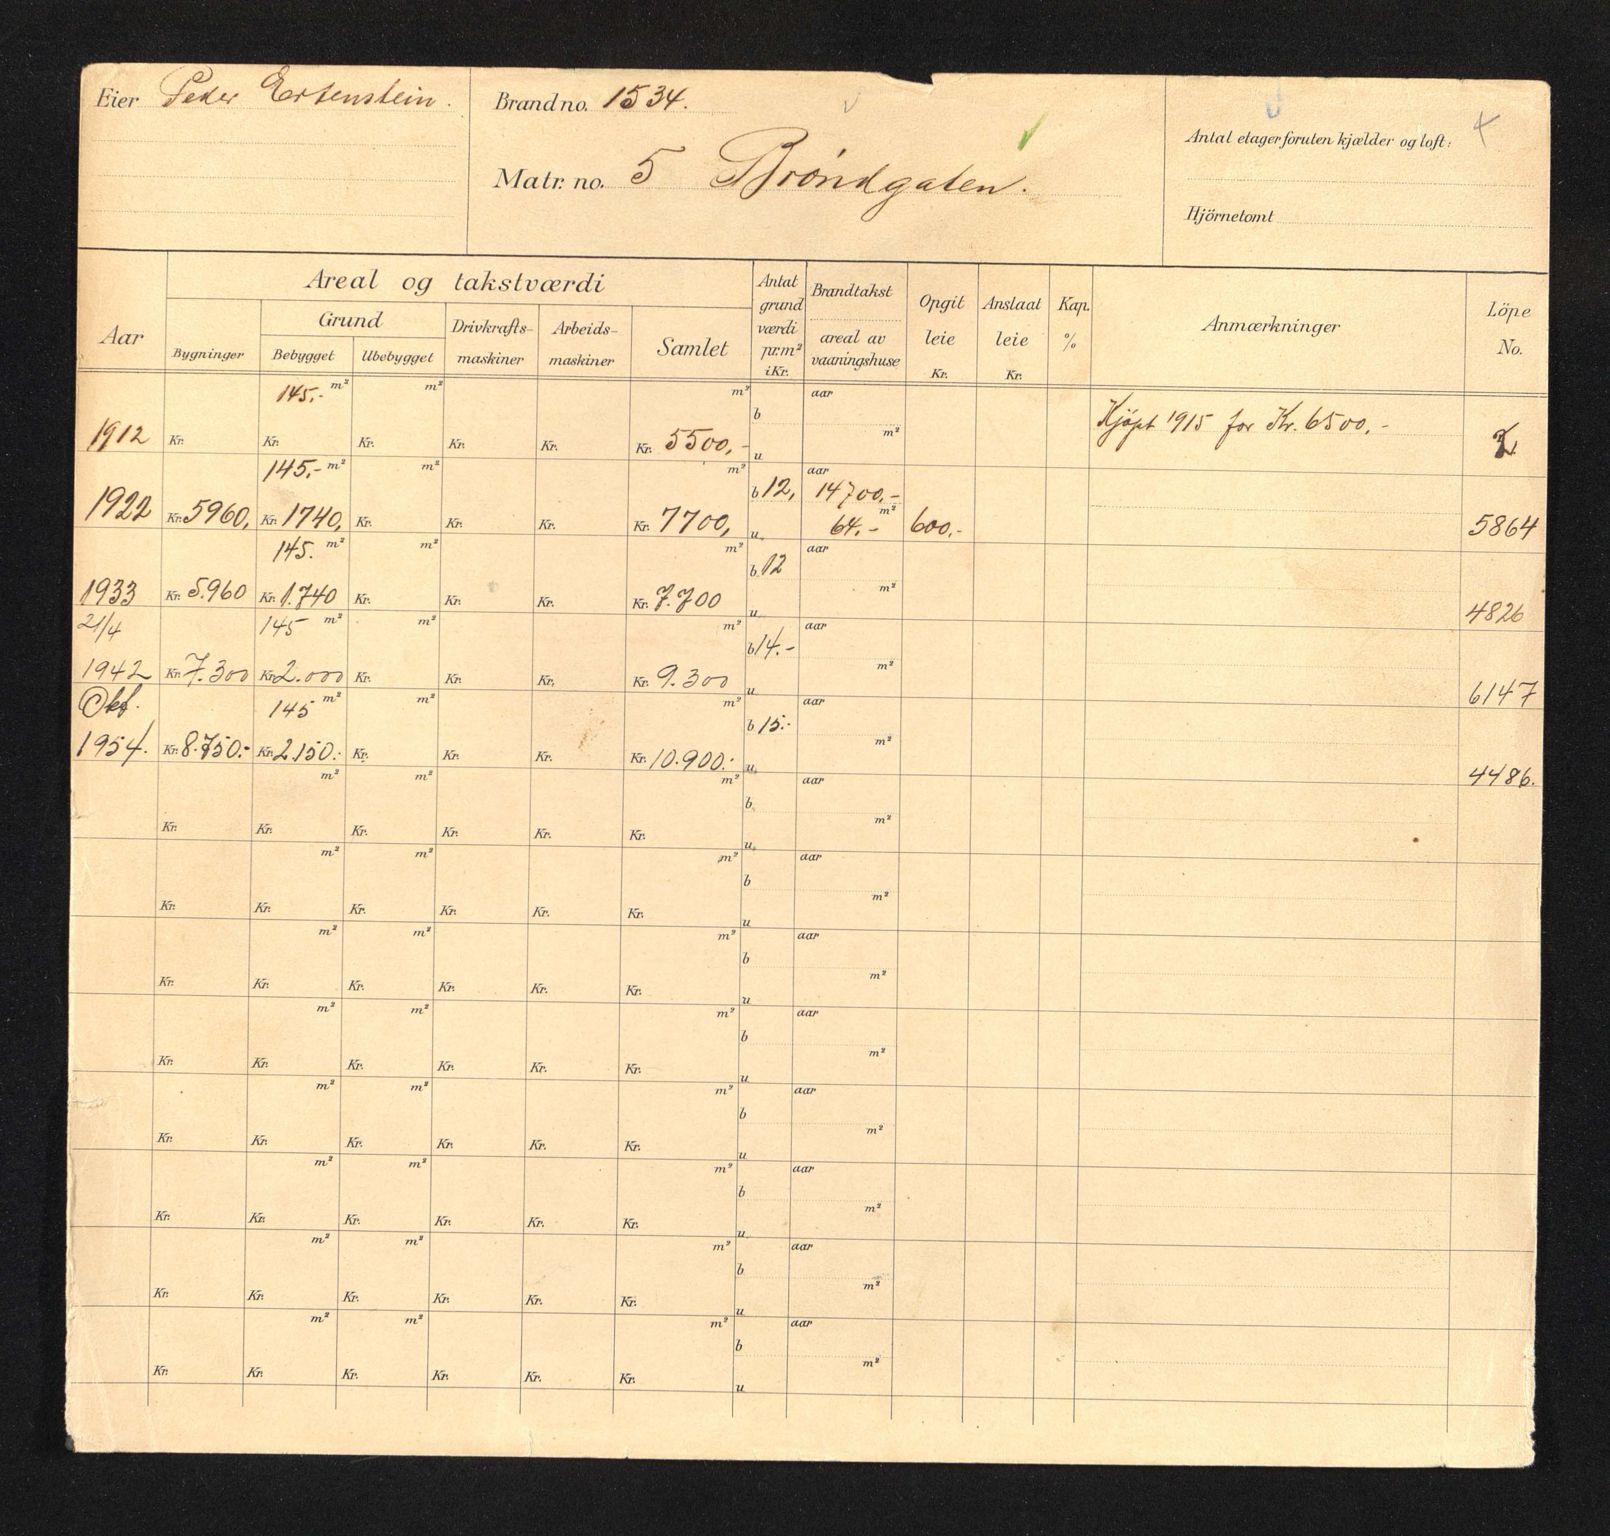 Eier Peder Ertenstein.
Brand no. 1534.
Matr. no. 5 Bröndgaten.
Antal etager foruten kjælder og loft:
Hjörnetomt
Aar
Areal og takstværdi
Bygninger
Grund
Bebygget
Ubebygget
Drivkrafts-
maskiner
Arbeids-
maskiner
Samlet
Antat
grund
værdi
pr. m²
i Kr.
Brandtakst
areal av
vaaningshuse
Opgit
leie
Kr.
Anslaat
leie
Kr.
Kap.
%
Anmærkninger
Löpe
No.
145.- m² m² m² aar
1912 Kr. Kr. Kr. Kr. Kr. Kr. 5500,- b u m² Kjöpt 1915 for Kr. 6500.-
145.- m² m² m² aar
1922 Kr. 5960, Kr. 1740, Kr. Kr. Kr. Kr. 7700, b 12, u 14700.- m² 64.- 600.- 5864
145. m² m² m² aar
1933 Kr. 5.960 Kr. 1.740 Kr. Kr. Kr. Kr. 7.700 b 12 u m² 4826
21/4 145 m² m² m² aar
1942 Kr. 7.300 Kr. 2.000 Kr. Kr. Kr. Kr. 9.300 b 14.- u m² 6147
Okt. 145 m² m² m² aar
1954. Kr. 8.750.- Kr. 2.150.- Kr. Kr. Kr. Kr. 10.900.- b 15.- u m² 4486.
m² m² m² aar
Kr. Kr. Kr. Kr. Kr. Kr. b u m²
m² m² m² aar
Kr. Kr. Kr. Kr. Kr. Kr. b u m²
m² m² m² aar
Kr. Kr. Kr. Kr. Kr. Kr. b u m²
m² m² m² aar
Kr. Kr. Kr. Kr. Kr. Kr. b u m²
m² m² m² aar
Kr. Kr. Kr. Kr. Kr. Kr. b u m²
m² m² m² aar
Kr. Kr. Kr. Kr. Kr. Kr. b u m²
m² m² m² aar
Kr. Kr. Kr. Kr. Kr. Kr. b u m²
m² m² m² aar
Kr. Kr. Kr. Kr. Kr. Kr. b u m²